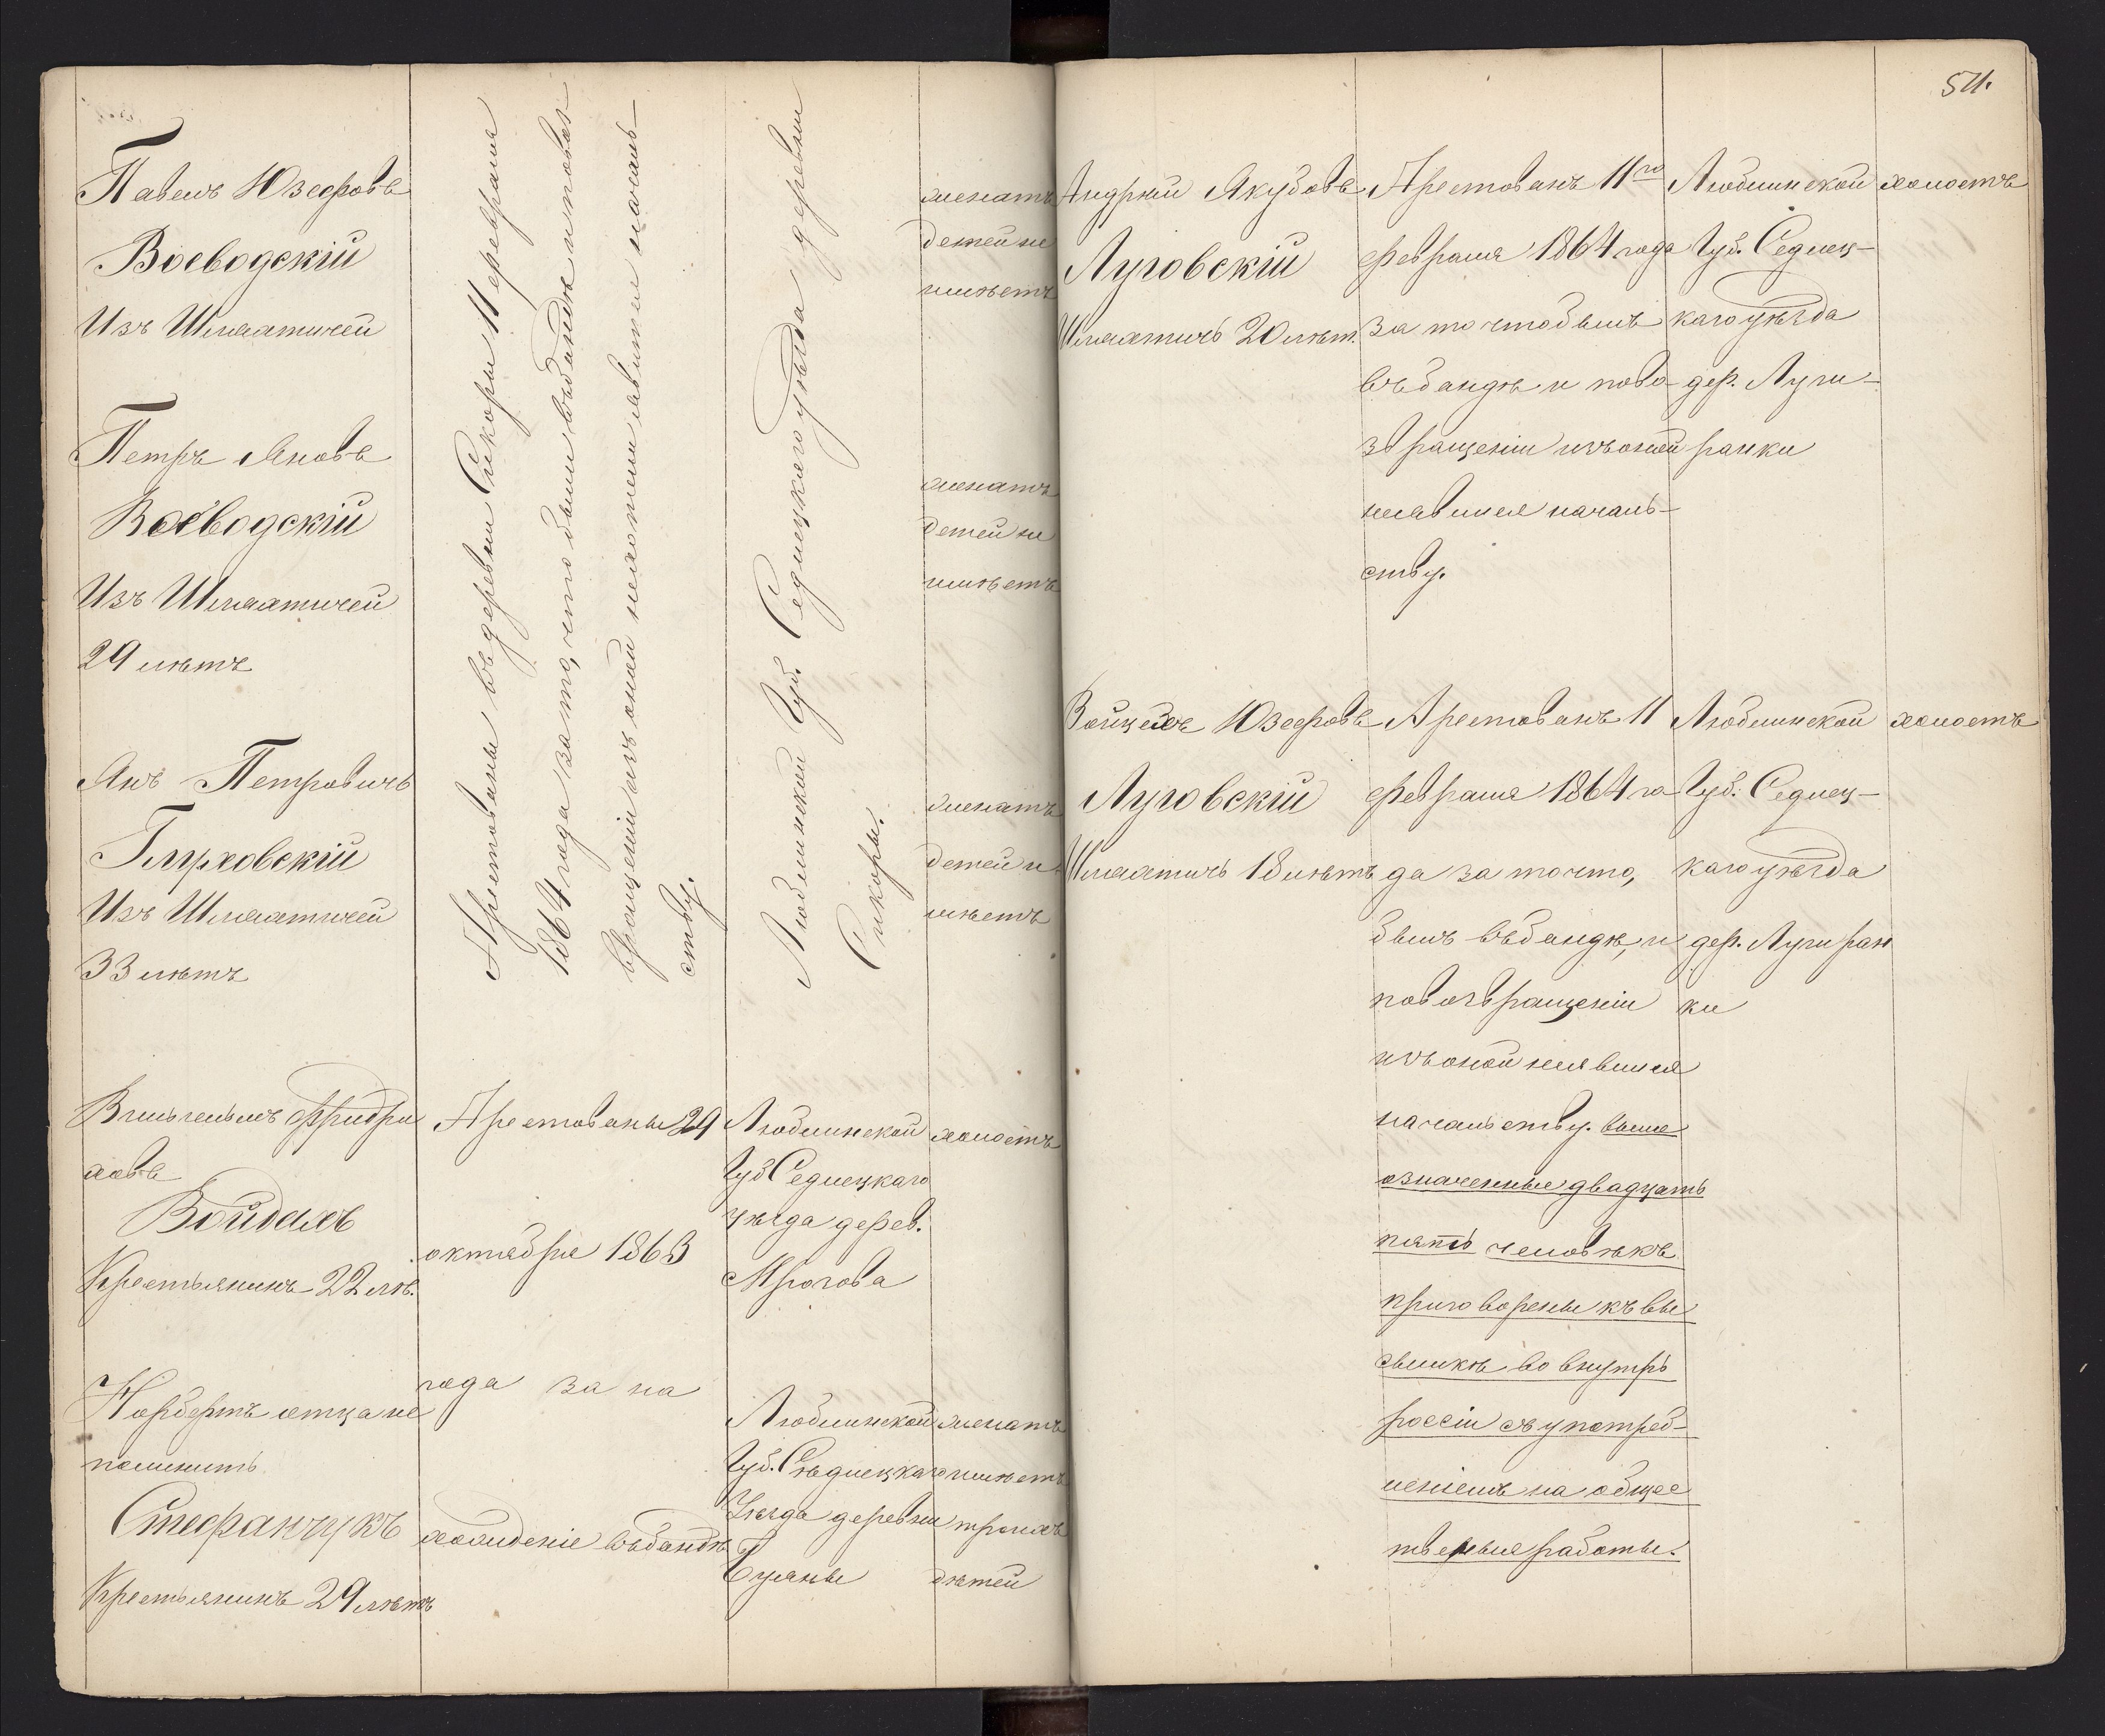 Павелъ Юзефовъ
Воеводскій
Изъ Шляхтичей
Петръ Яновъ
Воеводскій
Изъ Шляхтичей
29 лѣтъ
Янъ Петровичъ
Глуховскій
Изъ Шляхтичей
33 лѣтъ
Арестованы въ деревни Сикоры 11 февраля
1864 года за то, что были въ бандѣ и по воз-
вращеніи изъ оной не хотели явится началь-
ству.
Люблинской Губ. Седлецкаго уѣзда деревни
Сикоры.
женатъ
детей не
имѣетъ
женатъ
детей не
имѣетъ
женатъ
детей и-
мѣетъ
Вильгельмъ Фридри
ховъ
Войдахъ
Крестьянинъ 22 лѣ.
Арестованы 29
октября 1863
года за на
хожденіе въ бандѣ
Люблинской
Губ Седлецкаго
уѣзда дерев.
Мрозова
холостъ
Норбертъ отца не
помнитъ
Стефанчукъ
Крестьянинъ 29 лѣтъ
Люблинской
Губ. Сѣдлецкаго
Уѣзда деревни
Буяны
женатъ
имѣетъ
троихъ
дѣтей
54.
Андрѣй Якубовъ
Луговскій
Шляхтичъ 20 лѣт.
Арестованъ 11го
февраля 1864 года
за то что былъ
въ бандѣ и по во-
звращеніи изъ оной
неявился началь-
ству.
Люблинской
Губ. Седлец-
каго уѣзда
дер. Луги-
ранки
холостъ
Войцехъ Юзефовъ
Луговскій
Шляхтичъ 18 лѣтъ
Арестованъ 11
февраля 1864 го
да за то что,
былъ въ бандѣ, и
по возвращеніи
изъ оной неявился
начальству. выше
означенные двадцать
пять человѣкъ
приговорены къ вы
сылкѣ во внутрь
россіи съ употреб-
леніемъ на общее
твенныя работы.
Люблинской
Губ. Седлец-
каго уѣзда
дер. Луги ран
ки
холостъ